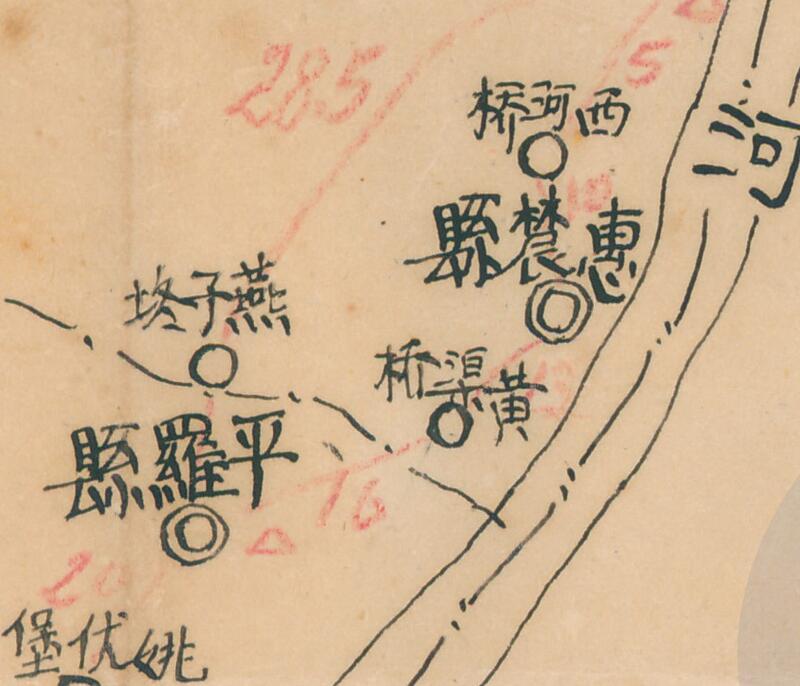 285
15
西河桥
河
惠辳縣
燕子
黄渠桥
平羅縣
16
20
姚伏堡